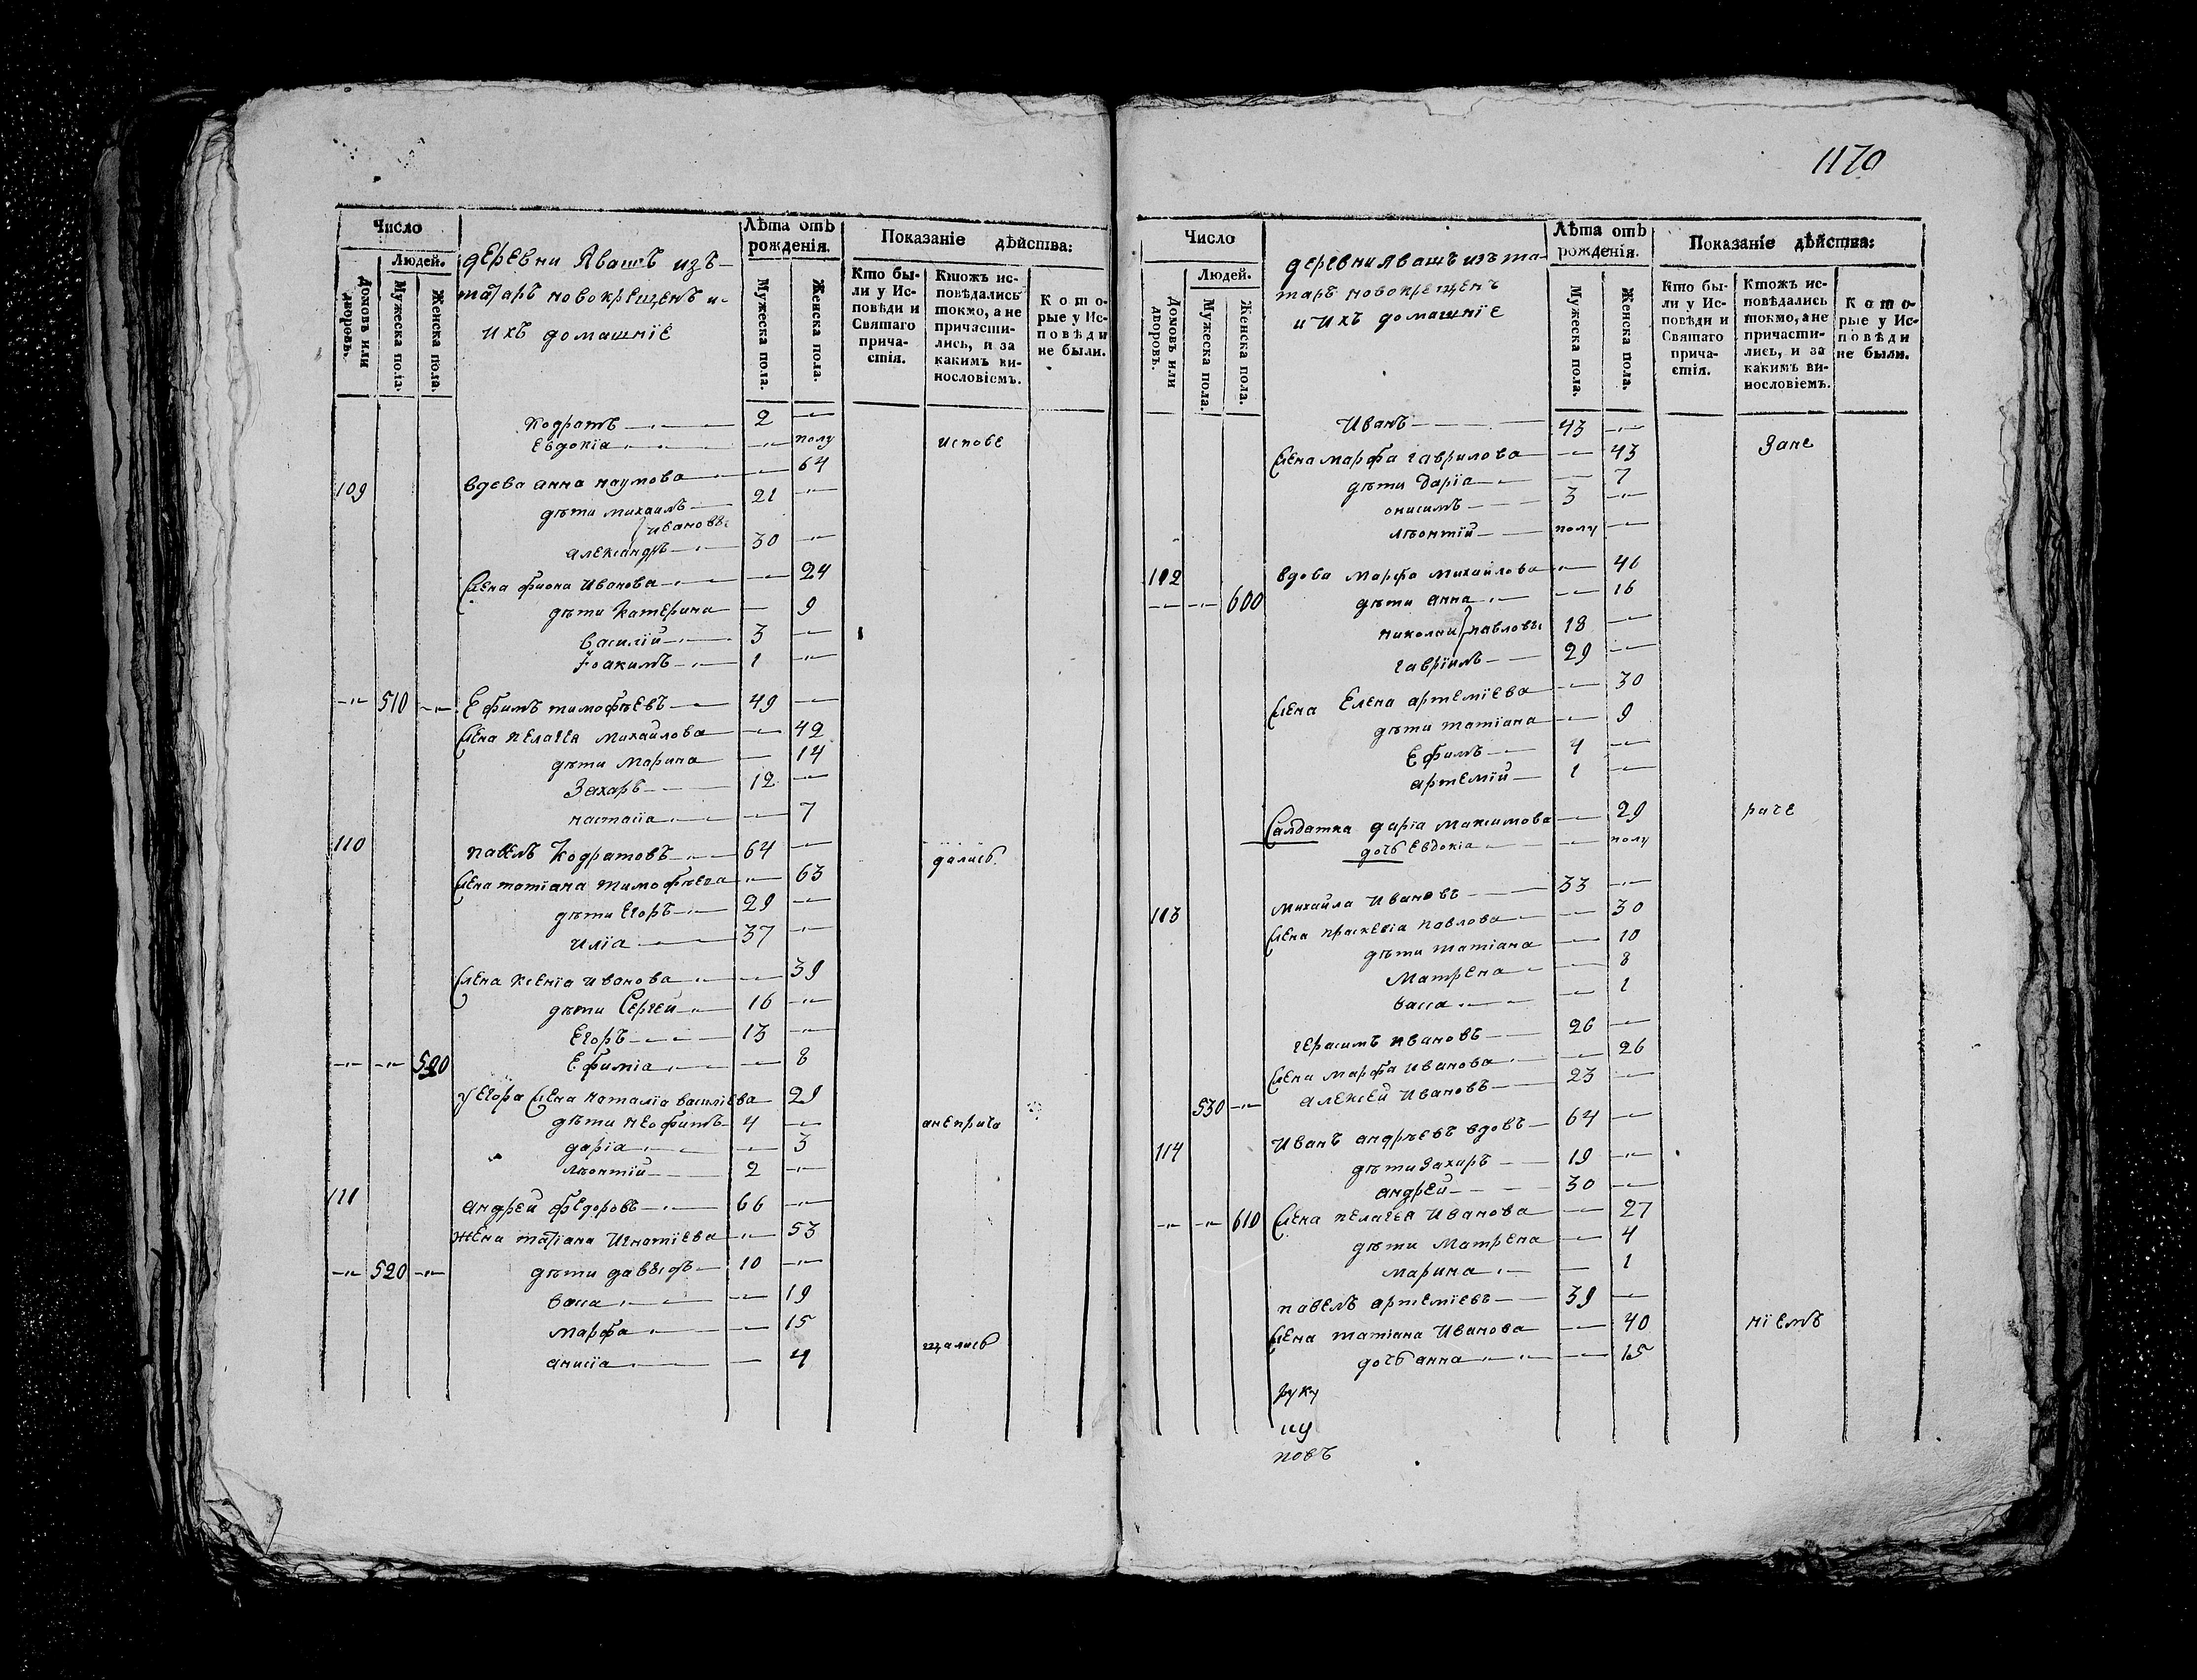 Число
Людей.
Домовъ или дворовъ.
Мужеска пола.
Женска пола.
деревни Явашъ изъ
татаръ новокрещенъ и
ихъ домашніе
Лѣта отъ
рожденія.
Мужеска пола.
Женска пола.
Показаніе дѣйства:
Кто бы-
ли у Ис-
повѣди и
Святаго
прича-
стія.
Ктожъ ис-
повѣдались
токмо, а не
причасти-
лись, и за
какимъ ви-
нословіемъ.
Кото-
рые у Ис-
повѣди
не были.
Кодратъ 2
Евдокіа полу испове
109 вдова анна наумова 64
дѣти михаилъ 21
ивановы
александръ 30
жена фиона Иванова 24
дѣти Катерина 9
василій 3
Іоакимъ 1
510 Ефимъ тимофѣевъ 49
жена пелагея михайлова 42
дѣти марина 14
Захаръ 12
настасіа 7
110 павелъ Кодратовъ 64 дались
жена татіана тимофѣева 63
дѣти Егоръ 29
иліа 37
жена ксеніа иванова 39
дѣти Сергей 16
Егоръ 13
590 Ефиміа 8
у Егора жена наталіа василіева 29
дѣти неофитъ 4 анеприча
даріа 3
лѣонтій 2
111 андрей федоровъ 66
жена татіана Игнатіева 53
520 дѣти давыдъ 10
васса 19
марфа 15 щались
анисіа 4
1170
Число
Людей.
Домовъ или дворовъ.
Мужеска пола.
Женска пола.
деревни Явашъ изъ та-
таръ новокрещенъ
и ихъ домашніе
Лѣта отъ
рожденія.
Мужеска пола.
Женска пола.
Показаніе дѣйства:
Кто бы-
ли у Ис-
повѣди и
Святаго
прича-
стія.
Ктожъ ис-
повѣдались
токмо, а не
причасти-
лись, и за
какимъ ви-
нословіемъ.
Кото-
рые у Ис-
повѣди
не были.
Иванъ 43
жена марфа гаврилова 43 Зане
дѣти даріа 7
онисимъ 3
лѣонтій полу
112 вдова марфа михайлова 46
600 дѣти анна 16
николай павловы 18
гавріилъ 29
жена Елена артеміева 30
дѣти татіана 9
Ефимъ 4
артемій 1
Салдатка даріа максимова 29 раче
дочь Евдокіа полу
113 михайла ивановъ 33
жена праскевіа павлова 30
дѣти татіана 10
матрена 8
васса 1
герасимъ ивановъ 26
жена марфа иванова 26
530 алексей ивановъ 23
114 Иванъ андрѣевъ вдовъ 64
дѣти Захаръ 19
андрей 30
610 жена пелагея Иванова 27
дѣти матрена 4
марина 1
павелъ артеміевъ 39
жена татіана Иванова 40 ніемъ
дочь анна 15
руку
повъ